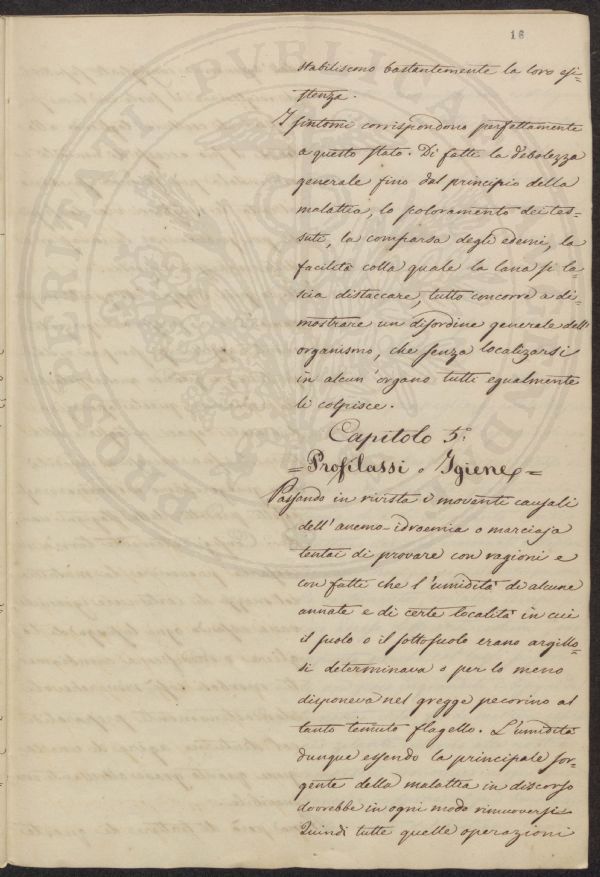 18
stabiliscono bastantemente la loro esi=
stenza.
I sintomi corrispondono perfettamente
a questo stato. Di fatti la debolezza
generale fino dal principio della
malattia, lo scoloramento dei tes=
suti, la comparsa degli edemi, la
facilità colla quale la lana si la=
scia distaccare, tutto concorre a di=
mostrare un disordine generale dell'
organismo, che senza localizarsi
in alcun'organo tutti egualmente
li colpisce.
Capitolo 5°.
= Profilassi e Igiene =
Passando in rivista i moventi causali
dell'anemo-idroemia o marciaja
tentai di provare con ragioni e
con fatti che l'umidità di alcune
annate e di certe località in cui
il suolo o il sottosuolo erano argillo=
si determinava o per lo meno
disponeva nel gregge pecorino al
tanto temuto flagello. L'umidità
dunque essendo la principale sor=
gente della malattia in discorso
dovrebbe in ogni modo rimuoversi.
Quindi tutte quelle operazioni
PROSPERITATI PVBLICAE